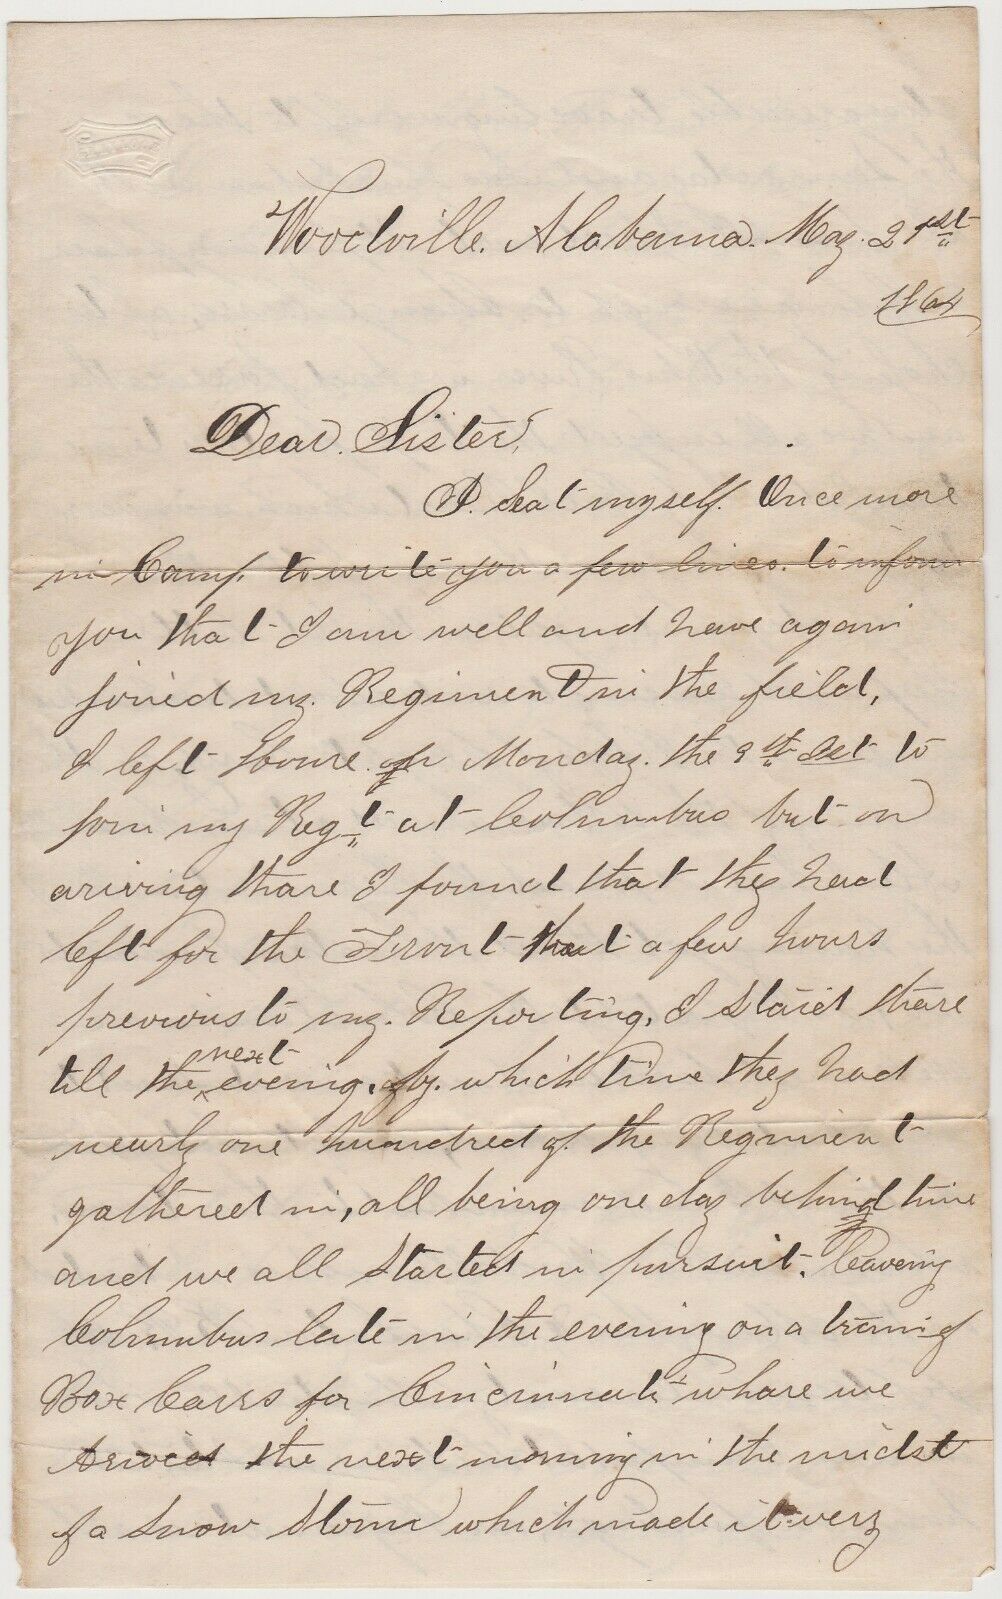 Woodville. Alabama. May. 21st
1864
Dear. Sister,
I. Seat myself. Once more
in Camp. to write you a few lines. to inform
you that I am well and have again
joined my. Regiment in the field,
I left Home. on Monday. the 9th Ist to
join my Regt at Columbus but on
ariving thare I found that they had
left for the Front but a few hours
previous to my. Reporting, I staid thare
till the next evening, by. which time they had
nearly one hundred of. the Regiment
gathered in, all being one day behind time
and we all Started in pursuit. leaveing
Columbus late in the evening on a train of
Box Carrs for Cincinnati whare we
Arived the next morning in the midst
of a Snow Storm which made it very